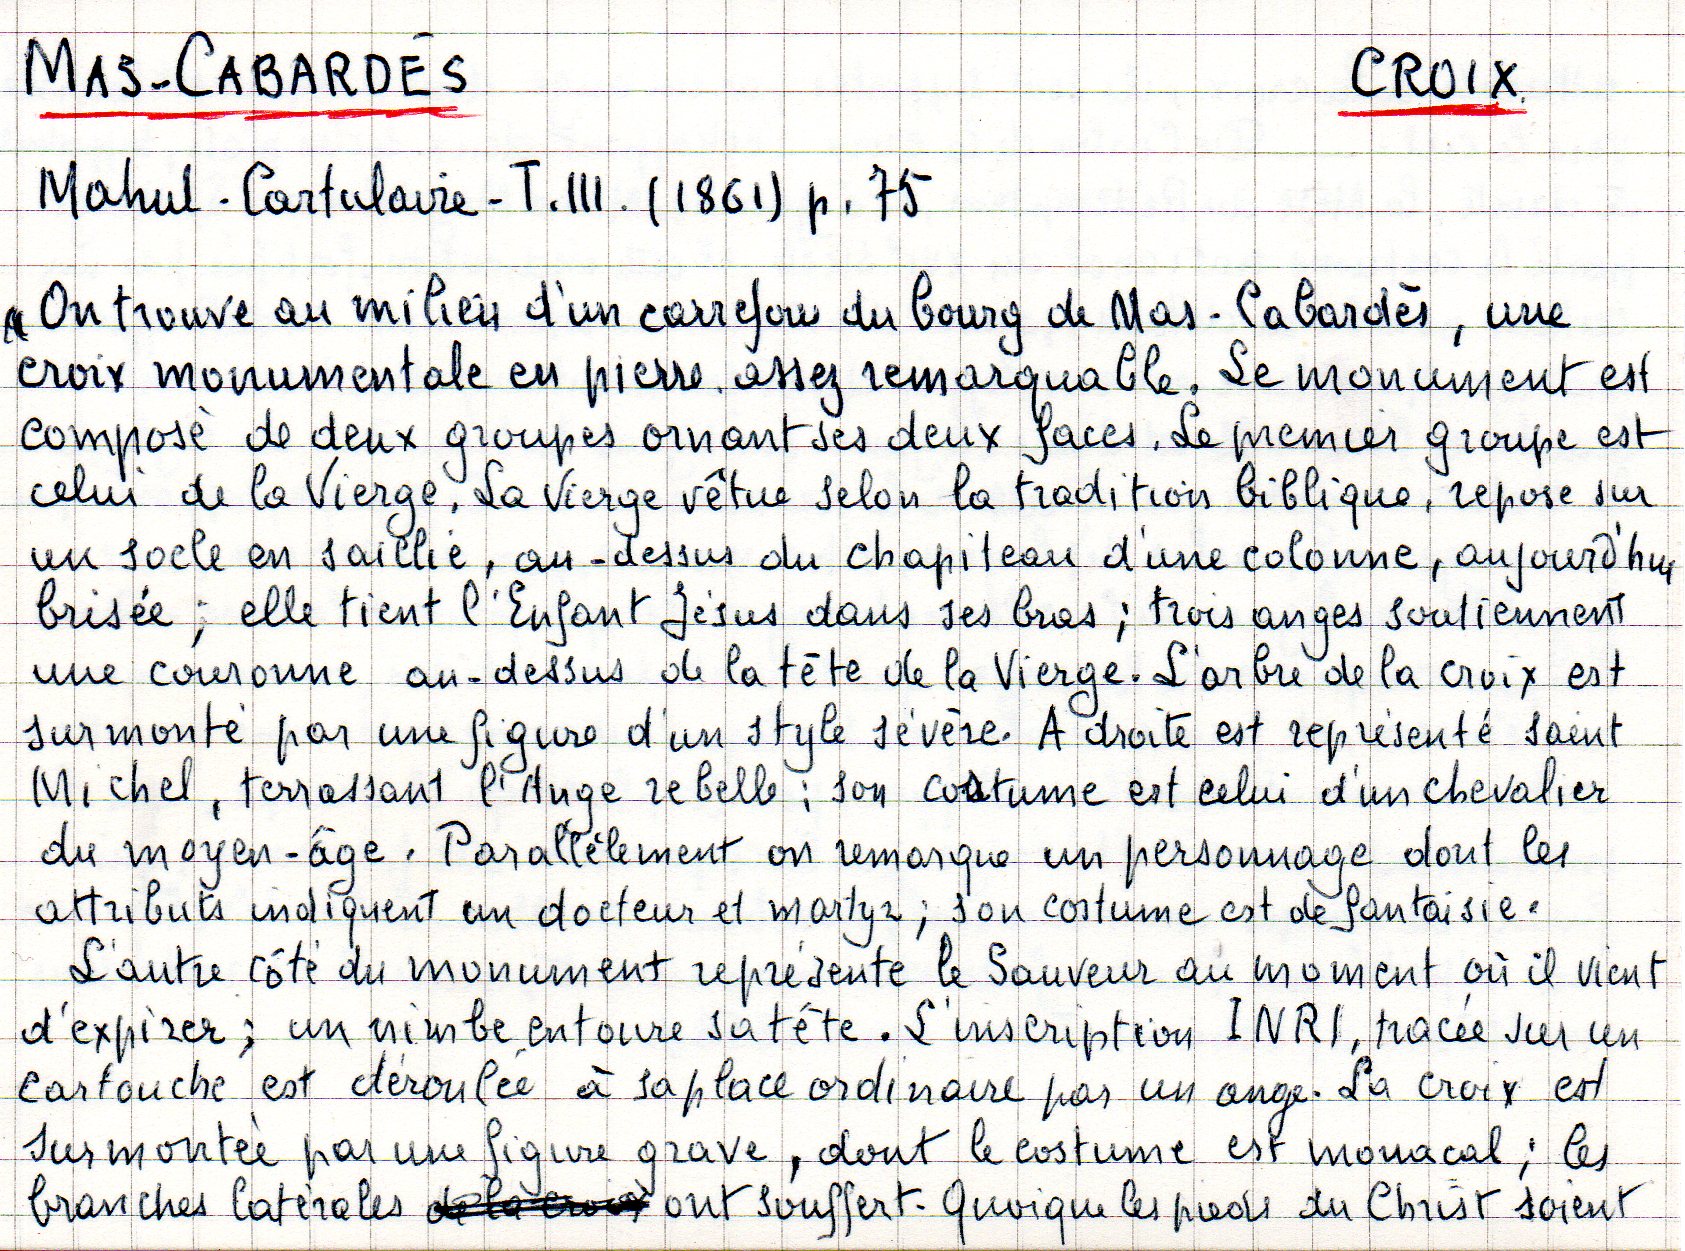 MAS-CABARDÈS CROIX
Mahul - Cartulaire - T. III. (1861) p. 75
"On trouve au milieu d'un carrefour du bourg de Mas-Cabardès, une
croix monumentale en pierre assez remarquable. Le monument est
composé de deux groupes ornant ses deux faces. Le premier groupe est
celui de la Vierge. La Vierge vêtue selon la tradition biblique, repose sur
un socle en saillie, au-dessus du chapiteau d'une colonne, aujourd'hui
brisée ; elle tient l'Enfant Jésus dans ses bras ; trois anges soutiennent
une couronne au-dessus de la tête de la Vierge. L'arbre de la croix est
surmonté par une figure d'un style sévère. A droite est représenté saint
Michel, terrassant l'Ange rebelle ; son costume est celui d'un chevalier
du moyen-âge. Parallèlement on remarque un personnage dont les
attributs indiquent un docteur et martyr ; son costume est de fantaisie.
L'autre côté du monument représente le Sauveur au moment où il vient
d'expirer ; un nimbe entoure sa tête. L'inscription INRI, tracée sur un
cartouche est déroulée à sa place ordinaire par un ange. La croix est
surmontée par une figure grave, dont le costume est monacal ; les
branches latérales de la croix ont souffert. Quoique les pieds du Christ soient